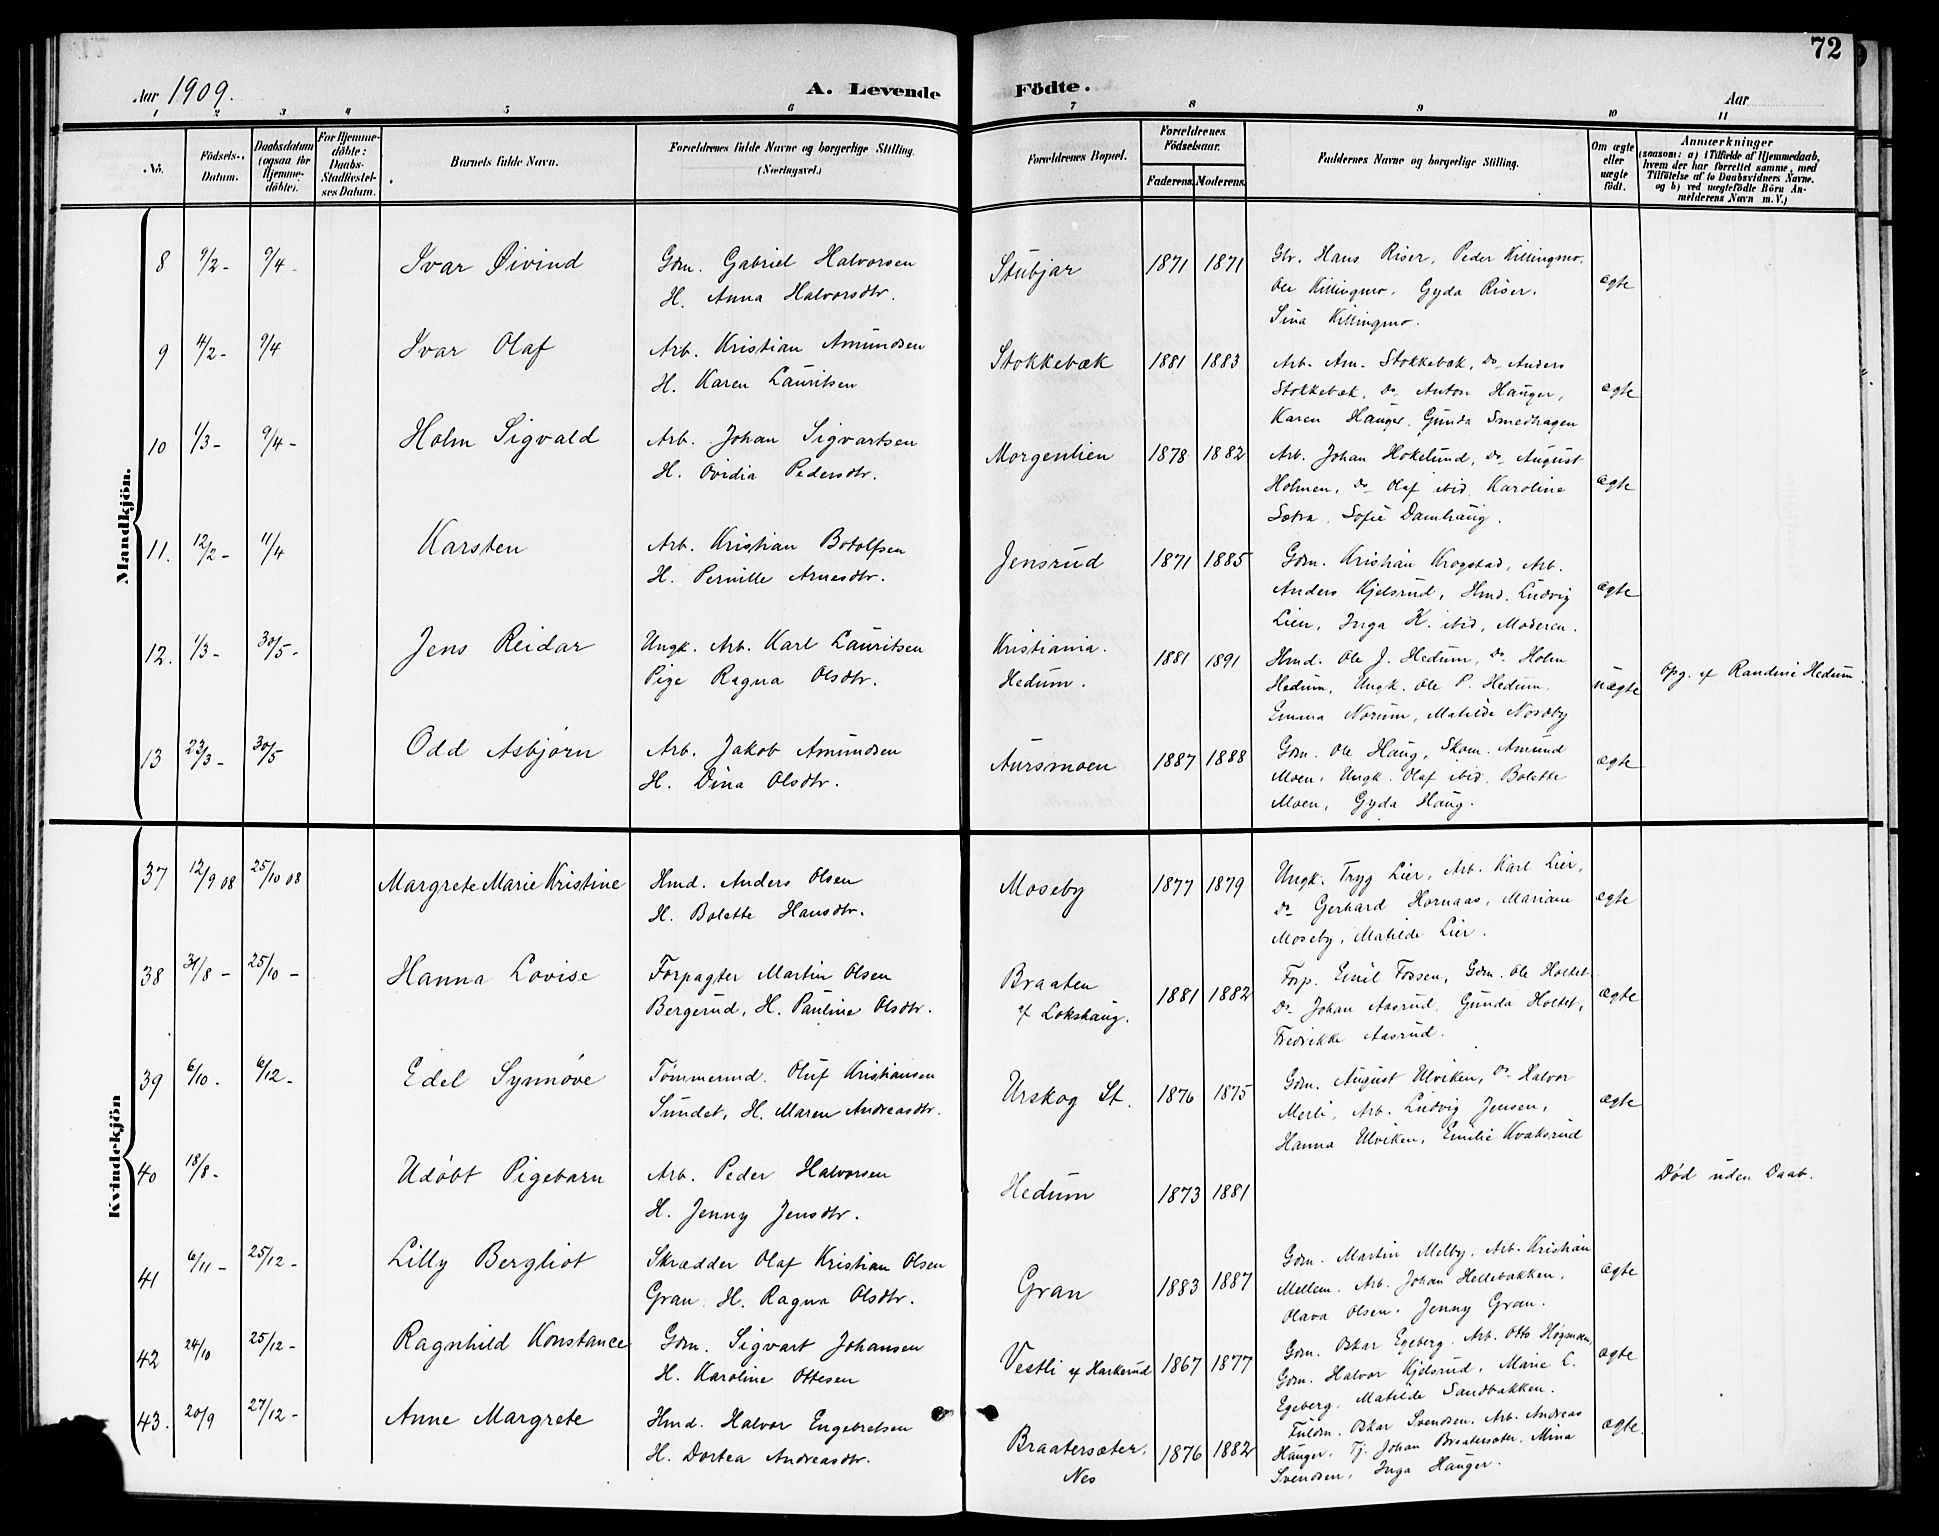 72
Aar 1909.
A. Levende Födte.
Aar
1 2 3 4 5 6 7 8 9 10 11
No.
Födsels-Datum.
Daabsdatum (ogsaa for Hjemmedöbte).
For Hjemmedöbte: Daabs-Stadfæstelses Datum.
Barnets fulde Navn.
Forældrenes fulde Navne og borgerlige Stilling. (Næringsvei.)
Forældrenes Bopæl.
Forældrenes Födselsaar.
Faderens. Moderens.
Faddernes Navne og borgerlige Stilling.
Om ægte eller uægte födt.
Anmærkninger
(saasom: a) i Tilfælde af Hjemmedaab, hvem der har forrettet samme, med Tilföielse af to Daabsvidners Navne. og b) ved uægtefödte Börn Anmelderens Navn m. V.)
Mandkjön.
8 9/2- 9/4- Ivar Øivind Gdm. Gabriel Halvorsen Stubjar 1871 1871 Gbr. Hans Riser, Peder Killingmo. ægte
H. Anna Halvorsdtr. Ole Killingmo, Gyda Riser.
Sina Killingmo.
9 4/2- 9/4 Ivar Olaf Arb. Kristian Amundsen Stokkebæk 1881 1883 Arb. Am. Stokkebæk, Do Anders ægte
H. Karen Lauritsen Stokkebæk, Do Anton Hauger,
Karen Hauger, Gunda Smedhagen
10 1/3- 9/4- Holm Sigvald Arb. Johan Sigvartsen Morgenlien 1878 1882 Arb. Johan Hokelund, Do August ægte
H. Ovidia Pedersdtr. Holmen, Do Olaf ibid. Karoline
Sætra. Sofie Damhaug.
11. 12/2- 11/4 Karsten Arb. Kristian Botolfsen Jensrud 1871 1885 Gdm. Kristian Krogstad, Arb. ægte
H. Pernille Arnesdtr. Anders Kjelsrud, Hmd. Ludvig
Lien, Inga K. ibid, Moderen.
12. 1/3- 30/5- Jens Reidar Ungk. Arb. Karl Lauritsen Kristiania. 1881 1891 Hmd. Ole J. Hedum, Do Holm uægte Opg. af Randine Hedum.
Pige Ragna Olsdtr. Hedum. Hedum, Ungk. Ole P. Hedum.
Emma Norum, Matilde Nordby
13 23/3- 30/5 Odd Asbjørn Arb. Jakob Amundsen Aursmoen 1887 1888 Gdm. Ole Haug, Skom. Amund ægte
H. Dina Olsdtr. Moen, Ungk. Olaf ibid, Bolette
Moen, Gyda Haug.
Kvindekjön
37 12/9 08 25/10 08 Margrete Marie Kristine Hmd. Anders Olsen Moseby 1877 1879 Ungk. Tryg Lier, Arb. Karl Lier, ægte
H. Bolette Hansdtr. Do Gerhard Hornaas, Mariane
Moseby, Matilde Lier.
38 31/8- 25/10- Hanna Lovise Forpagter Martin Olsen Braaten 1881 1882 Forp. Emil Fossen, Gdm. Ole Holtet ægte
Bergerud, H. Pauline Olsdtr. af Lokshaug. Do Johan Aasrud, Gunda Holtet,
Fredrikke Aasrud.
39 6/10. 6/12- Edel Synnøve Tømmermd. Oluf Kristiansen Urskog St. 1876 1875 Gdm. August Ulviken, Do Halvor ægte
Sundet, H. Maren Andreasdtr. Merli, Arb. Ludvig Jensen,
Hanna Ulviken, Emilie Kvaksrud
40 18/8- Udøbt Pigebarn Arb. Peder Halvorsen Hedum 1873 1881 Død uden Daab.
H. Jenny Jensdtr.
41 6/11- 25/12- Lilly Bergliot Skrædder Olaf Kristian Olsen Gran 1883 1887 Gdm. Martin Melby, Arb. Kristian ægte
Gran. H. Ragna Olsdtr. Mellem. Arb. Johan Hellebakken.
Olava Olsen. Jenny Gran.
42 24/10 25/12- Ragnhild Konstance Gdm. Sigvart Johansen Vestli af Harkerud 1867 1877 Gdm. Oskar Egeberg. Arb. Otto Høgsmoen, ægte
H. Karoline Ottesen Gdm. Halvor Kjelsrud, Marie L.
Egeberg, Matilde Sandbakken.
43. 20/9 27/12- Anne Margrete Hmd. Halvor Engebretsen Braatersæter. 1876 1882 Fuldm. Oskar Svendsen. Arb. Andreas ægte.
H. Dortea Andreasdtr. Nes Hauger. Tj. Johan Braatersæter. Mina
Svendsen, Inga Hauger.